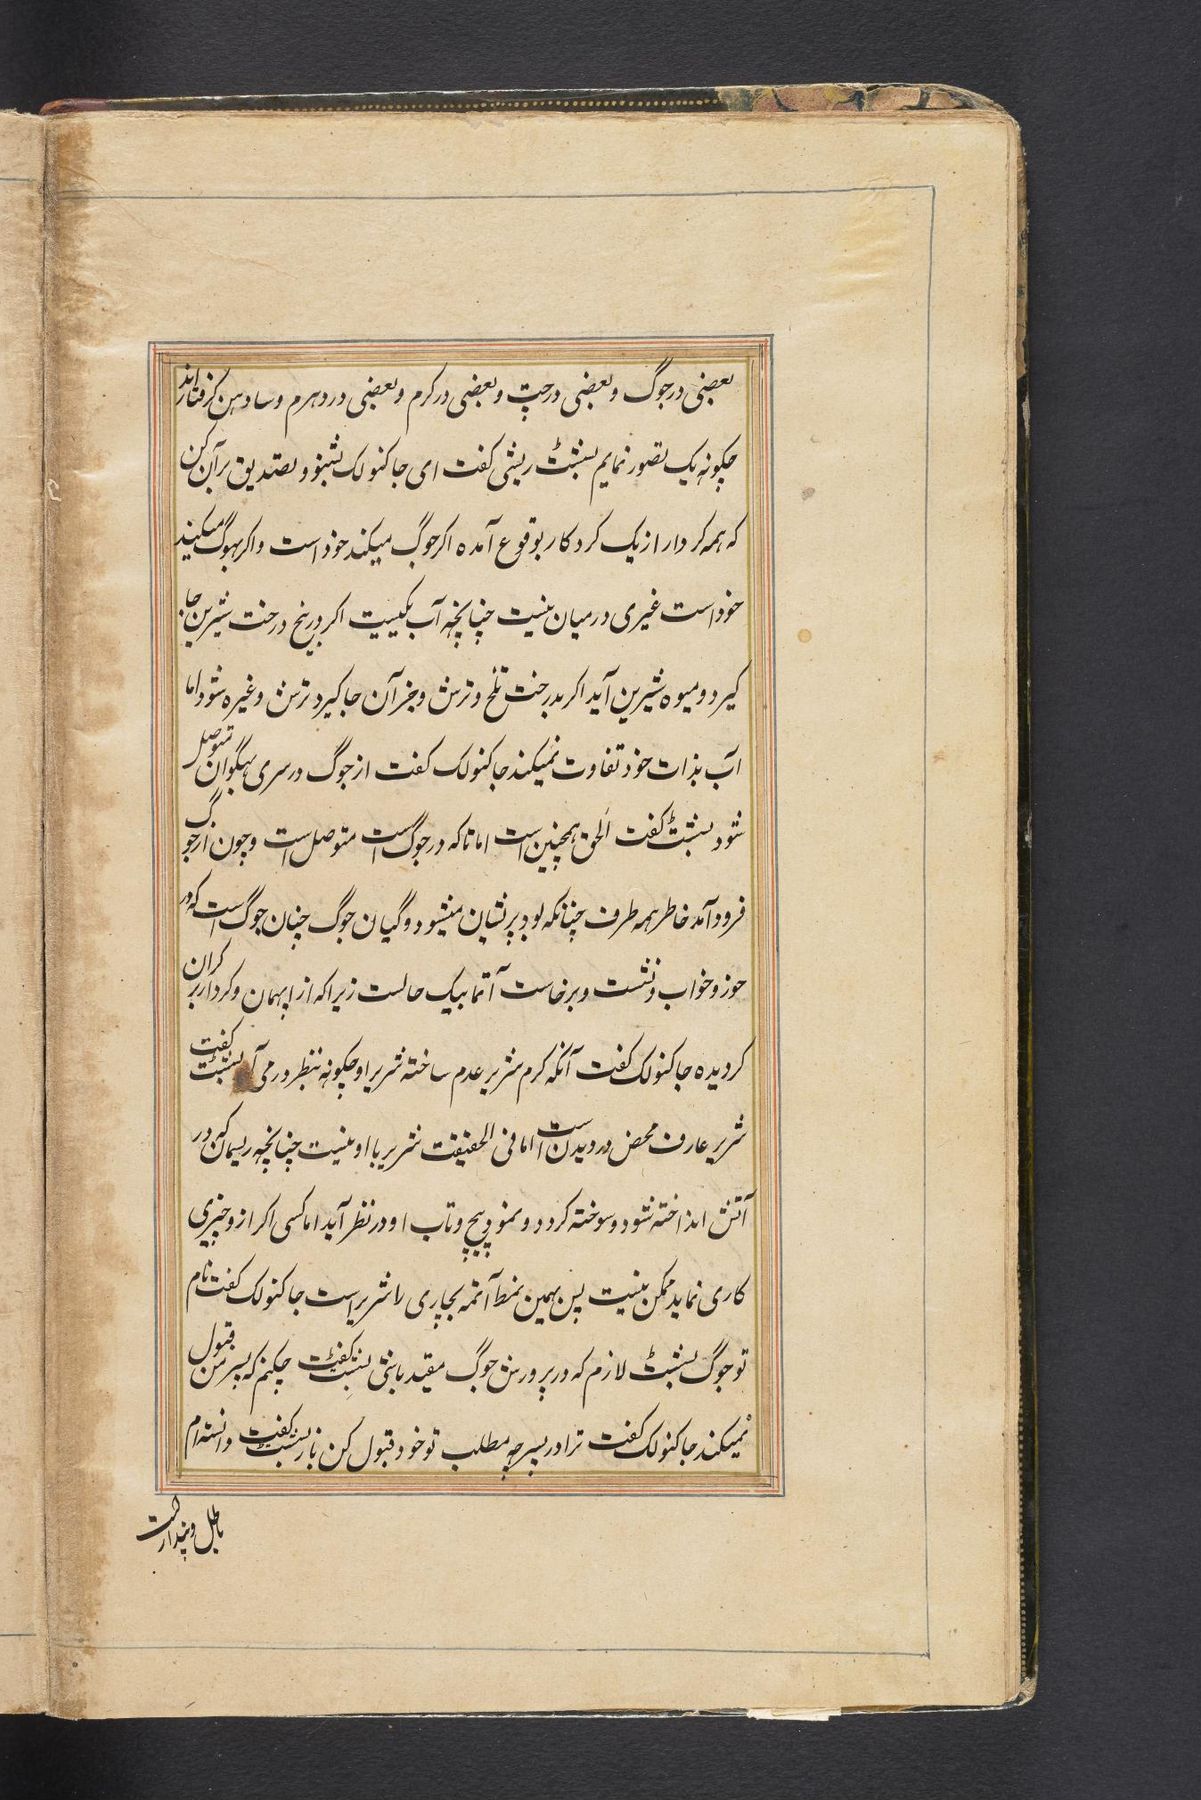 بعضی در جوگ و بعضی در جپ و بعضی در کرم و بعضی در دهرم و سادهن گرفتار اند
چکونه یک تصور نمایم بسشت ریشی کفت ای جاکنولک بشنو و تصدیق برآن کن
که همه کردار از یک کردکار بوقوع آمده اکر جوگ میکند خود است و اکر بهوگ میکند
خود است غیری در میان نیست چنانچه آب یکیست اکر در بیخ درخت شیرین جا
کیرد و میوه شیرین آید اکر بدرخت تلخ و ترش و جز آن جا کیرد ترش و غیره شود اما
آب بذات خود تفاوت نمیکند جاکنولک کفت از جوگ در سری بهگوان متوصل
شود بسشت کفت الحق همچنین است اما تا که در جوگ است متوصل است و چون از جوگ
فرود آمد خاطر همه طرف چنانکه بود پریشان میشود و گیان جوگ چنان جوگ است که در
خور و خواب و نشست و برخاست آتما بیک حالست زیرا که از ابهمان و کردار بر کران
کردیده جاکنولک کفت آنکه کرم شریر عدم ساخته شریر او چکونه بنظر در می آید بسشت کفت
شریر عارف محض در دیدن است اما فی الحقیقت شریر با او نیست چنانچه ریسمان که در
آتش انداخته شود و سوخته کردد و نمود پیچ و تاب او در نظر آید اما کسی اکر از و چیزی
کاری نماید ممکن نیست پس بهمین نمط آتمه بچاری را شریر است جاکنولک کفت نام
تو جوگ بسشت لازم که در پرورش جوگ مقید باشی بسشت کفت چکنم که پسر من قبول
نمیکند جاکنولک کفت ترا در پسر چه مطلب تو خود قبول کن باز بسشت کفت دانسته ام
باطل و پندار است